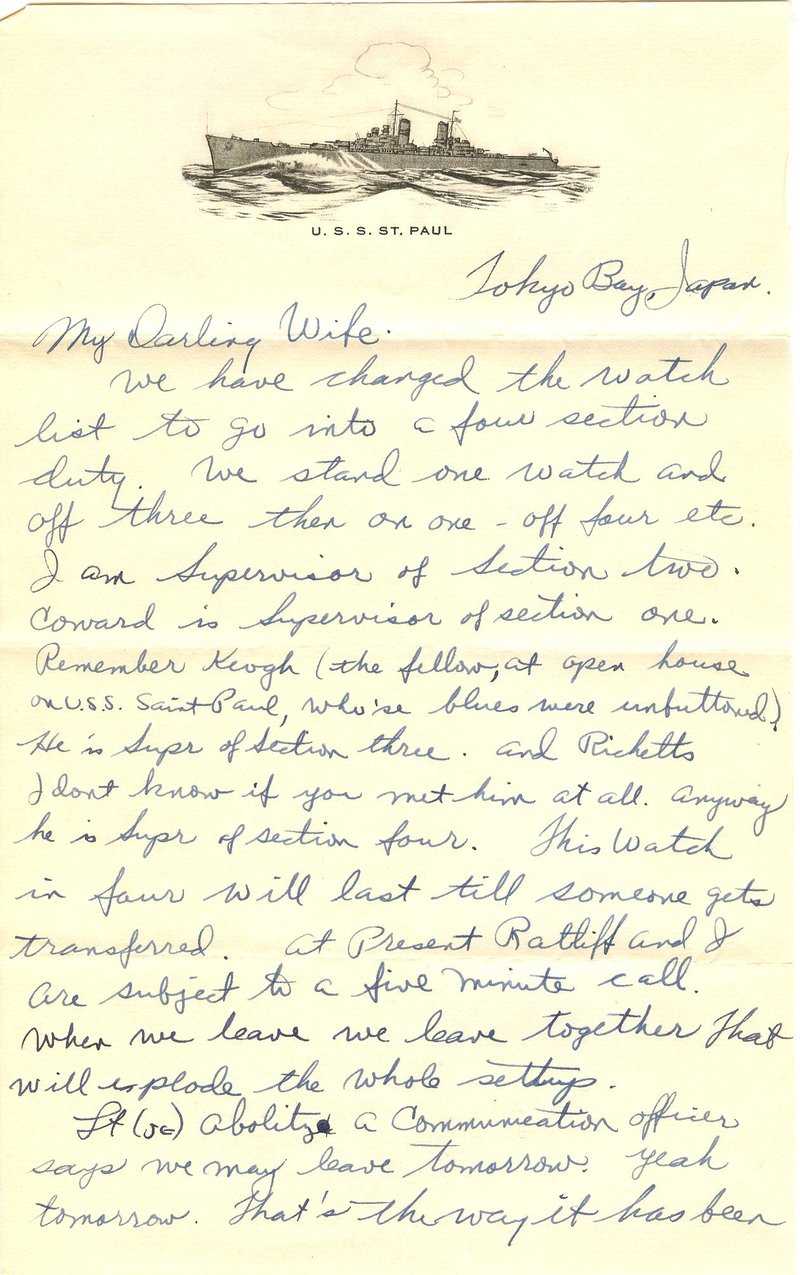 U. S. S. ST. PAUL
Tokyo Bay, Japan.
My Darling Wife.
We have changed the watch
list to go into a four section
duty. We stand one watch and
off three then on one - off four etc.
I am Supervisor of Section two.
Coward is Supervisor of section one.
Remember Keogh (the fellow, at open house
on U.S.S. Saint Paul, who'se blues were unbuttoned)
He is Supr of Section three. and Ricketts
I dont know if you met him at all. anyway
he is Supr of section four. This Watch
in four will last till someone gets
transferred. at Present Ratliff and I
are subject to a five minute call.
When we leave we leave together that
will explode the whole settup.
Lt (JG) a Communication officer
says we may leave tomorrow. Yeah
tomorrow. That's the way it has been